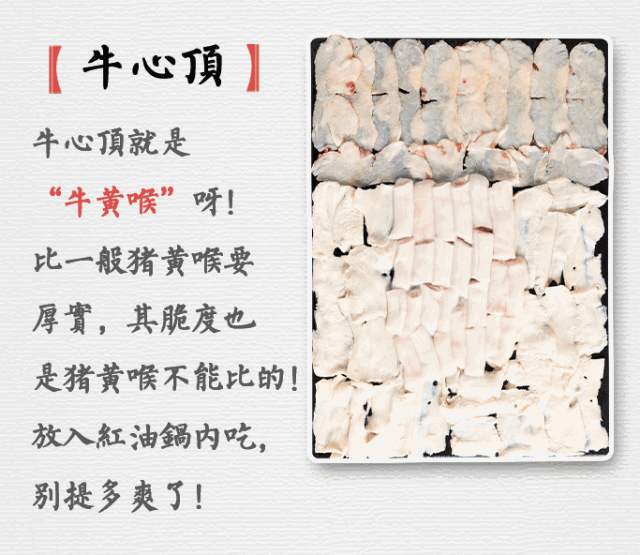 【牛心頂】
牛心頂就是
“牛黃喉”呀!
比一般猪黃喉要
厚實，其脆度也
是猪黃喉不能比的!
放入紅油鍋内吃,
别提多爽了!